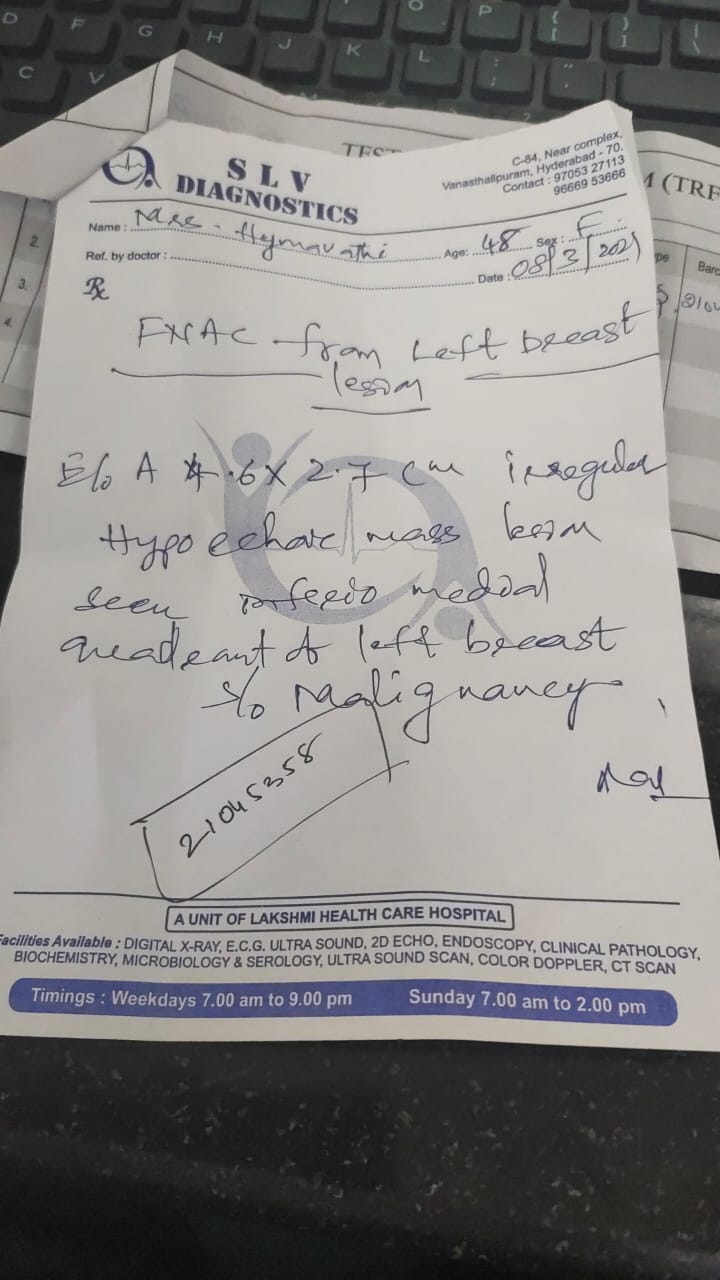 D F G H J K L O P { [ } ]
C V : ; " '
TEST
M (TRF
2.
3.
4.
Barc
SLV
DIAGNOSTICS
C-84, Near complex,
Vanasthalipuram, Hyderabad - 70.
Contact : 97053 27113
96669 53666
Name : Mrs. Hymavathi Age: 48 Sex : F.
Ref. by doctor : Date : 08/3/2021
Rx
FNAC from Left breast
lesion
E/o A 4.6 x 2.7 cm irregular
Hypoechoic mass lesion
seen inferio medial
quadrant of left breast
s/o Malignancy.
21045358
A UNIT OF LAKSHMI HEALTH CARE HOSPITAL
Facilities Available : DIGITAL X-RAY, E.C.G. ULTRA SOUND, 2D ECHO, ENDOSCOPY, CLINICAL PATHOLOGY,
BIOCHEMISTRY, MICROBIOLOGY & SEROLOGY, ULTRA SOUND SCAN, COLOR DOPPLER, CT SCAN
Timings : Weekdays 7.00 am to 9.00 pm Sunday 7.00 am to 2.00 pm